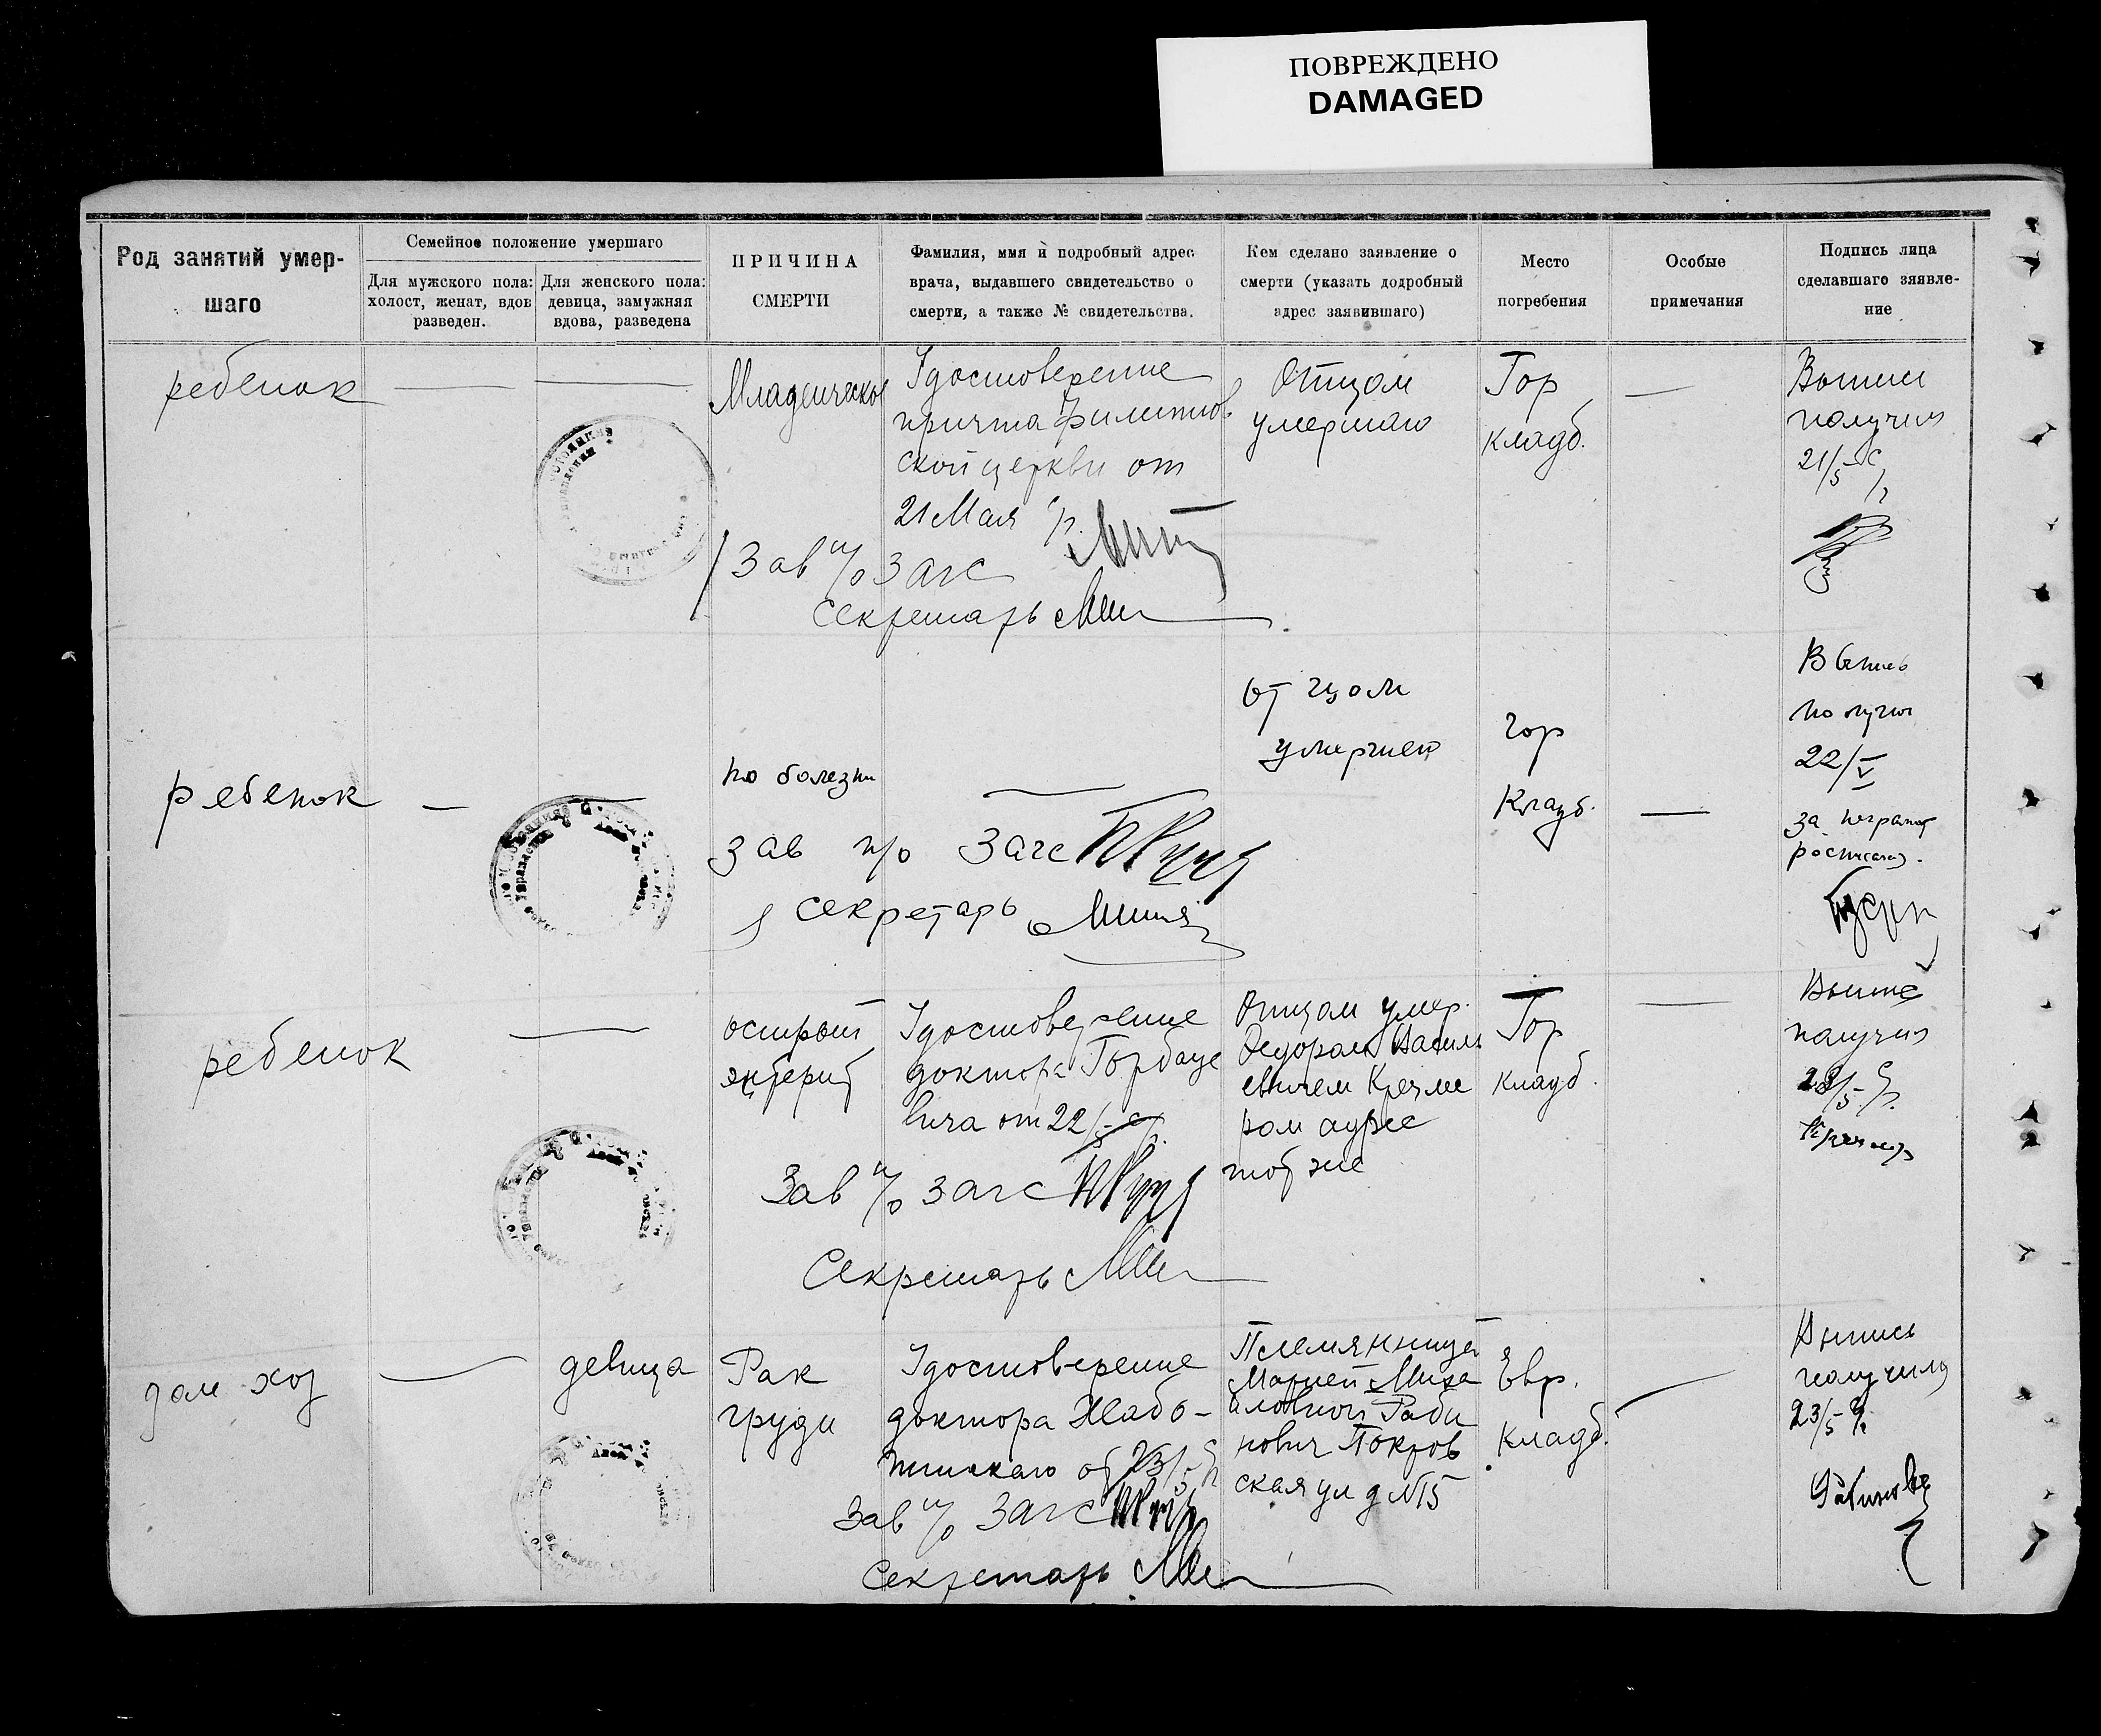 ПОВРЕЖДЕНО
DAMAGED
Род занятий умер-
шаго
Семейное положение умершаго
Для мужского пола:
холост, женат, вдов
разведен.
Для женского пола:
девица, замужняя
вдова, разведена
ПРИЧИНА
СМЕРТИ
Фамилия, имя и подробный адрес
врача, выдавшего свидетельство о
смерти, а также № свидетельства.
Кем сделано заявление о
смерти (указать додробный
адрес заявившаго)
Место
погребения
Особые
примечания
Подпись лица
сделавшаго зяявле-
ние
ребенок
Младенческое
Удостоверение
причта Филиппов
ской церкви от
21 Мая с/г.
Отцом
умершаго
Гор
кладб.
Выпись
получил
21/5 с/г
Зав п/о Загс
Секретарь
ребенок
по болезни
отцом
умершего
гор
Кладб.
Выпись
получил
22/V
за неграмот
росписался.
зав п/о Загс
секретарь
ребенок
острый
энтерит
Удостоверение
доктора Горбаце
вича от 22/5 с/г.
Отцом умер.
Федором Василь
евичем Кречме
ром адрес
тот же
Гор
кладб.
Выпись
получил
22/5 с/г.
Зав п/о Загс
Секретарь
дом хоз
девица
Рак
груди
Удостоверение
доктора Жабо-
тинскаго от 23/5 с/г
Племянницей
Марией Миха
иловной Раби
нович Покров
ская ул д №15
Евр.
кладб.
Выпись
получила
23/5 с/г.
Рабинович
Зав п/о Загс
Секретарь